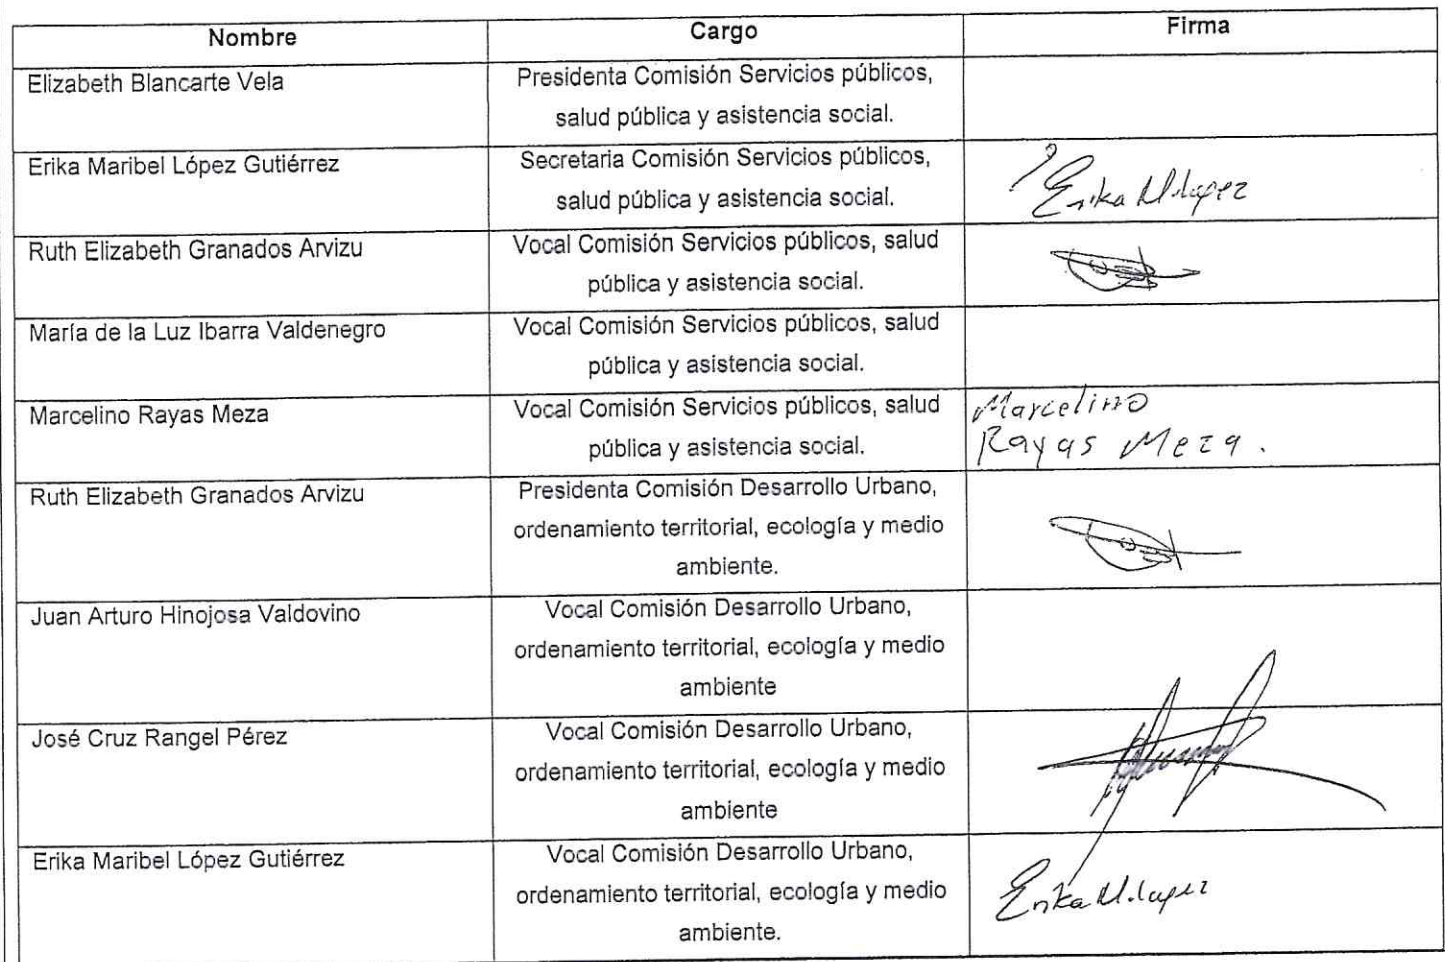 Nombre
Cargo
Firma
Elizabeth Blancarte Vela
Presidenta Comisión Servicios públicos,
salud pública y asistencia social.
Erika Maribel López Gutiérrez
Secretaria Comisión Servicios públicos,
salud pública y asistencia social.
Erika M. López
Ruth Elizabeth Granados Arvizu
Vocal Comisión Servicios públicos, salud
pública y asistencia social.
María de la Luz Ibarra Valdenegro
Vocal Comisión Servicios públicos, salud
pública y asistencia social.
Marcelino Rayas Meza
Vocal Comisión Servicios públicos, salud
pública y asistencia social.
Marcelino
Rayas Meza.
Ruth Elizabeth Granados Arvizu
Presidenta Comisión Desarrollo Urbano,
ordenamiento territorial, ecología y medio
ambiente.
Juan Arturo Hinojosa Valdovino
Vocal Comisión Desarrollo Urbano,
ordenamiento territorial, ecología y medio
ambiente
José Cruz Rangel Pérez
Vocal Comisión Desarrollo Urbano,
ordenamiento territorial, ecología y medio
ambiente
Erika Maribel López Gutiérrez
Vocal Comisión Desarrollo Urbano,
ordenamiento territorial, ecología y medio
ambiente.
Erika M. López